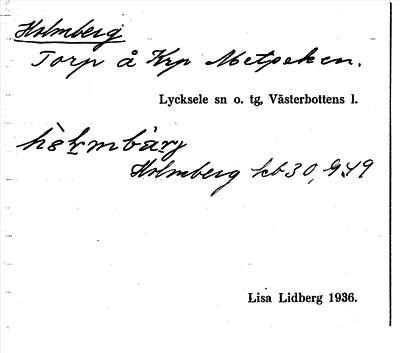 Holmberg
Torp å Krp Metseken.
Lycksele sn o. tg, Västerbottens l.
Holmberg kb 30, G. 49
Lisa Lidberg 1936.